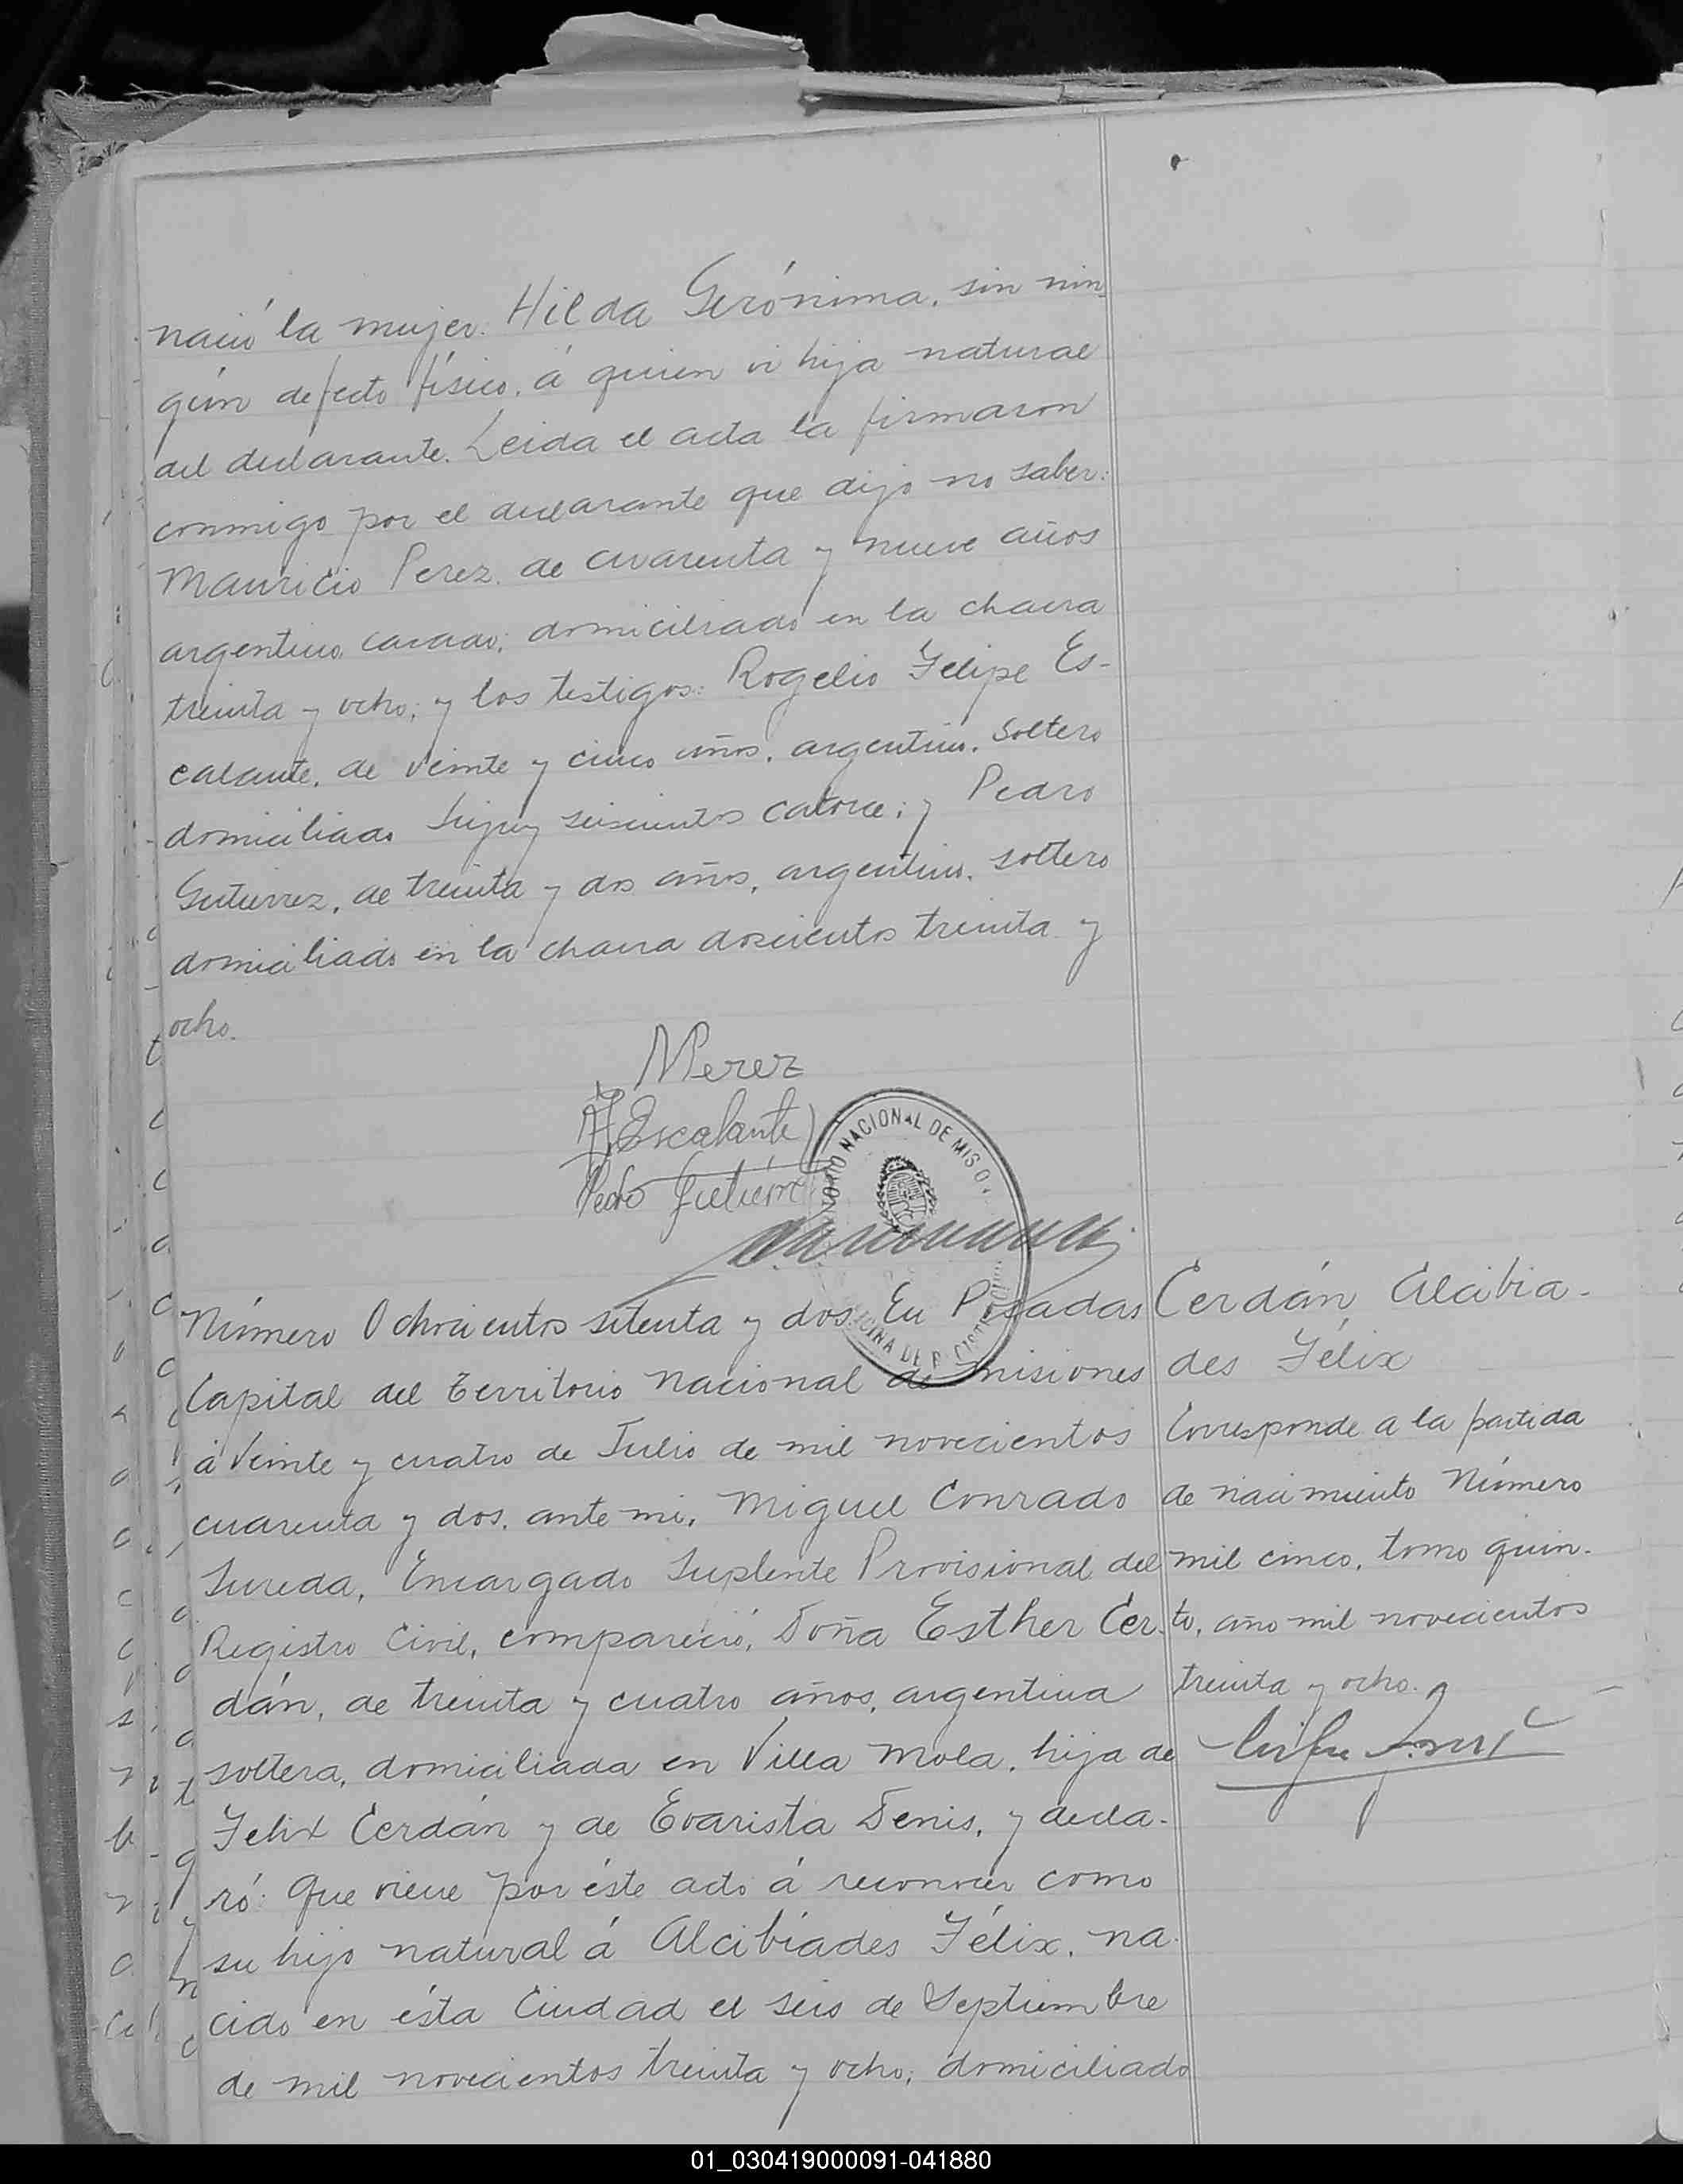 nació la mujer: Hilda Gerónima, sin nin
gún defecto físico, á quien vi hija natural
del declarante. Leida el acta la firmaron
conmigo por el declarante que dijo no saber:
Mauricio Perez, de cuarenta y nueve años
argentino, casado, domiciliado en la chacra
treinta y ocho; y los testigos: Rogelio Felipe Es-
calante, de veinte y cinco años, argentino, soltero
domiciliado Jujuy seiscientos catorce; y Pedro
Gutierrez, de treinta y dos años, argentino, soltero
domiciliado en la chacra doscientos treinta y
ocho.
MPerez
R F Escalante
Pedro Gutiérrez
NACIONAL DE MISIO
OFICINA DE
Número Ochocientos setenta y dos. En Posadas
Capital del Territorio Nacional de Misiones
á Veinte y cuatro de Julio de mil novecientos
cuarenta y dos, ante mi, Miguel Conrado
Sureda, Encargado Suplente Provisional del
Registro Civil, compareció, Doña Esther Cer-
dán, de treinta y cuatro años, argentina
soltera, domiciliada en Villa Mola, hija de
Felix Cerdán y de Evarista Denis, y decla-
ró: Que viene por éste acto á reconocer como
su hijo natural á Alcibíades Félix, na-
cido en ésta Ciudad el seis de Septiembre
de mil novecientos treinta y ocho; domiciliado
Cerdán, Alcibia-
des Félix
Corresponde a la partida
de nacimiento Número
mil cinco, tomo quin-
to, año mil novecientos
treinta y ocho.
01_030419000091-041880